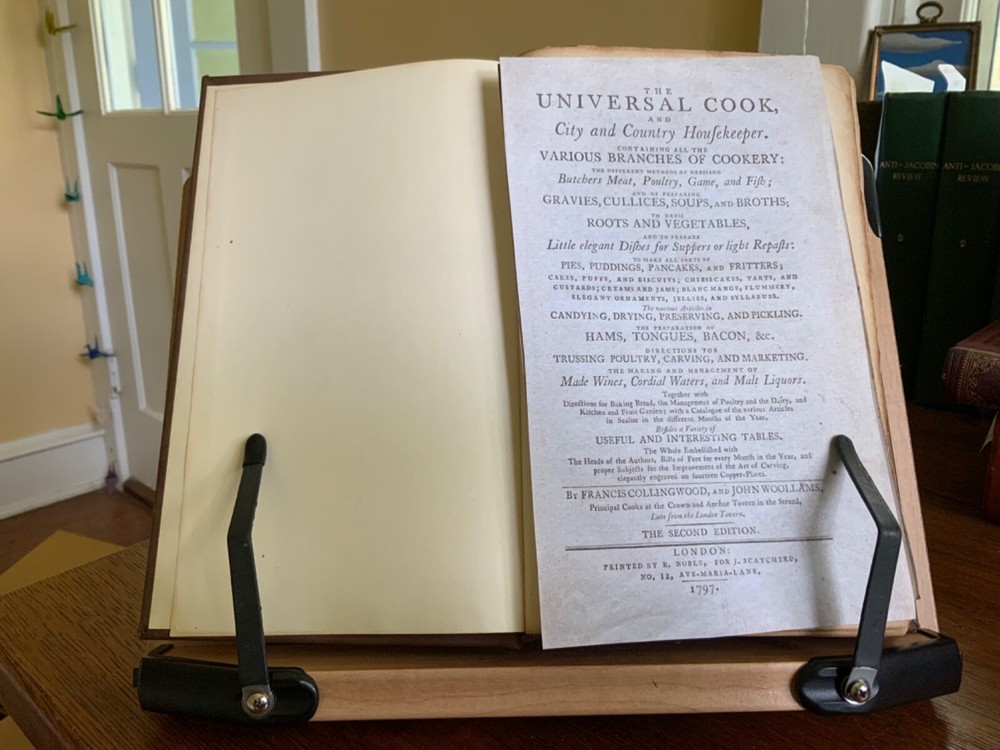 THE
UNIVERSAL COOK,
AND
City and Country Houſekeeper.
CONTAINING ALL THE
VARIOUS BRANCHES OF COOKERY:
THE DIFFERENT METHODS OF DRESSING
Butchers Meat, Poultry, Game, and Fiſh;
AND OF PREPARING
GRAVIES, CULLICES, SOUPS, AND BROTHS;
TO DRESS
ROOTS AND VEGETABLES,
AND TO PREPARE
Little elegant Diſhes for Suppers or light Repaſts:
TO MAKE ALL SORTS OF
PIES, PUDDINGS, PANCAKES, AND FRITTERS;
CAKES, PUFFS, AND BISCUITS; CHEESECAKES, TARTS, AND
CUSTARDS; CREAMS AND JAMS; BLANC MANGE, FLUMMERY,
ELEGANT ORNAMENTS, JELLIES, AND SYLLABUBS.
The various Articles in
CANDYING, DRYING, PRESERVING, AND PICKLING.
THE PREPARATION OF
HAMS, TONGUES, BACON, &c.
DIRECTIONS FOR
TRUSSING POULTRY, CARVING, AND MARKETING.
THE MAKING AND MANAGEMENT OF
Made Wines, Cordial Waters, and Malt Liquors.
Together with
Directions for Baking Bread, the Management of Poultry and the Dairy, and
Kitchen and Fruit Garden; with a Catalogue of the various Articles
in Seaſon in the different Months of the Year.
Beſides a Variety of
USEFUL AND INTERESTING TABLES.
The Whole Embelliſhed with
The Heads of the Authors, Bills of Fare for every Month in the Year, and
proper Subjects for the Improvement of the Art of Carving,
elegantly engraved on fourteen Copper-Plates.
BY FRANCIS COLLINGWOOD, AND JOHN WOOLLAMS,
Principal Cooks at the Crown and Anchor Tavern in the Strand,
Late from the London Tavern.
THE SECOND EDITION.
LONDON:
PRINTED BY R. NOBLE, FOR J. SCATCHERD,
NO. 12, AVE-MARIA-LANE,
1797.
ANTI-JACOBIN
REVIEW
ANTI-JACOBIN
REVIEW
2